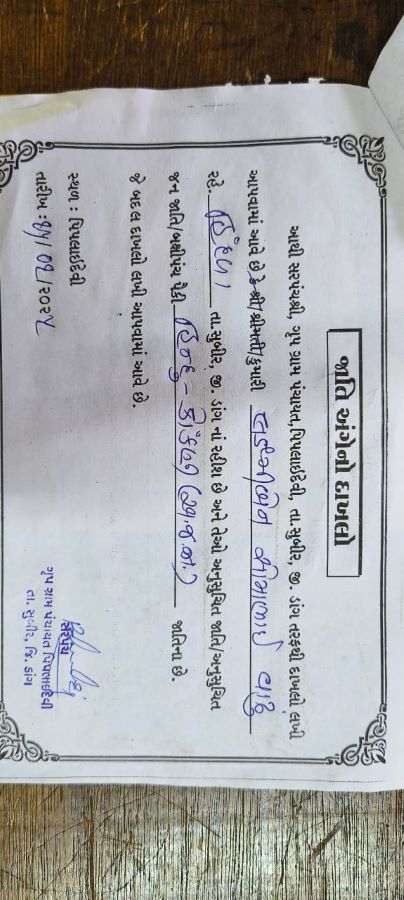 જાતિ અંગેનો દાખલો
આથી સરપંચશ્રી, ગૃપ ગ્રામ પંચાયત,પિપલાઇદેવી, તા.સુબીર, જી. ડાંગ તરફથી દાખલો લખી
આપવામાં આવે છે કે શ્રી/શ્રીમતી/કુમારી લક્ષ્મીબેન સોમાભાઇ વાઘ
રહે. હિંદળા તા.સુબીર, જી. ડાંગ નાં રહીશ છે અને તેઓ અનુસુચિત જાતિ/અનુસુચિત
જન જાતિ/બક્ષીપંચ પૈકી હિન્દુ - કોંકણી (અ.જ.જા.) જાતિના છે.
જે બદલ દાખલો લખી આપવામાં આવે છે.
સ્થળ : પિપલાઇદેવી
તારીખ : /૦૬/૨૦૨૪
સરપંચ
ગૃપ ગ્રામ પંચાયત પિપલાઇદેવી
તા. સુબીર, જિ. ડાંગ